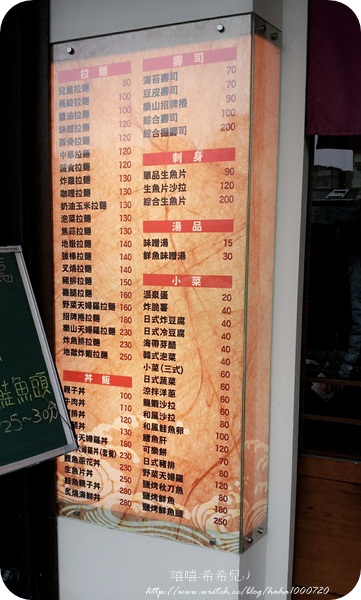 拉麵
兒童拉麵 80
長崎拉麵 100
醬油拉麵 100
味噌拉麵 120
豚骨拉麵 120
中華拉麵
蔬食拉麵 120
炸雞拉麵 130
咖哩拉麵 130
奶油玉米拉麵 130
泡菜拉麵 130
焦蒜拉麵 130
地獄拉麵 140
強棒拉麵 140
叉燒拉麵 140
豬排拉麵 150
雞腿拉麵 160
野菜天婦羅拉麵 160
招牌拉麵 180
樂山天婦羅拉麵 230
炸魚排拉麵
地獄炸蝦拉麵 250
丼飯
親子丼 100
牛肉丼 110
天婦羅丼 180
生魚片丼 250
鮭魚親子丼
炙燒海鮮丼 280
壽司
海苔壽司 70
豆皮壽司 70
樂山招牌捲 90
綜合壽司 100
綜合握壽司 200
刺身
單品生魚片 90
生魚片沙拉 120
綜合生魚片 200
湯品
味噌湯 15
鮮魚味噌湯 30
小菜
溫泉蛋 20
炸脆薯 40
日式炸豆腐 40
日式冷豆腐 40
海帶芽醋 40
韓式泡菜 40
小菜(三式)
日式蔬菜
涼拌洋蔥 60
龍蝦沙拉
和風沙拉
和風鮭魚卵
鱈魚肝 100
可樂餅
日式豬排
野菜天婦羅
鹽烤秋刀魚
鹽烤鮮魚
鹽烤鮮魚頭 250
鮭魚頭
25~30分
嘻嘻-希希兒:)
http://www.wretch.cc/blog/haha1000720